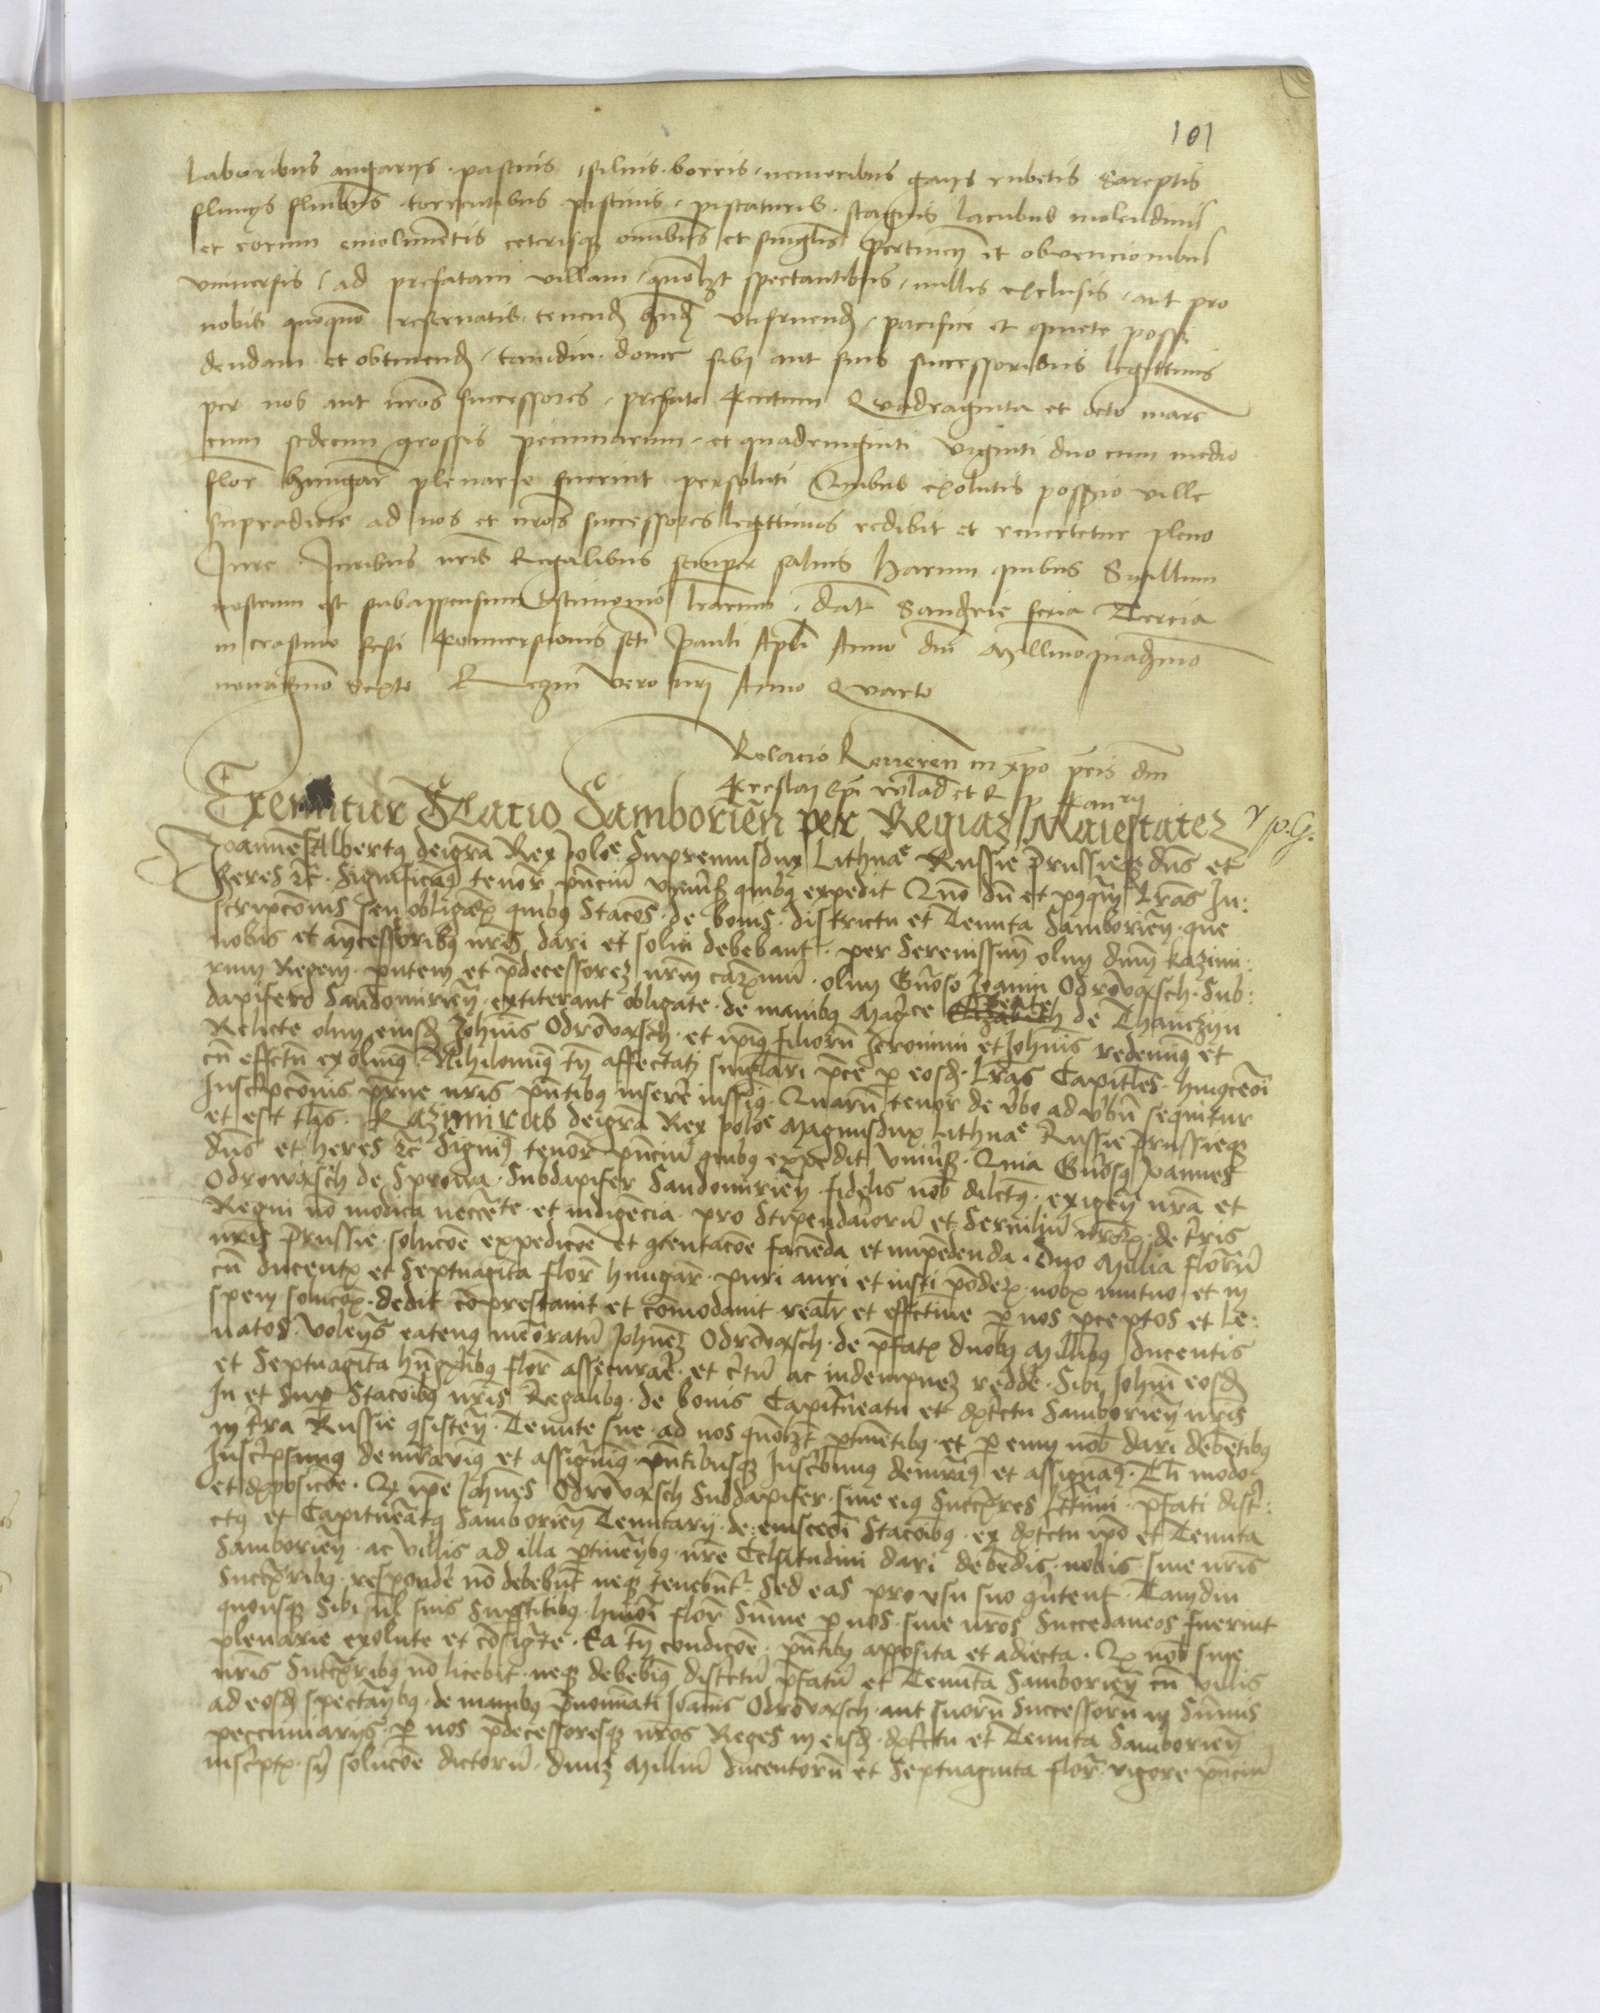 101
laboribus angarijs · pascuis , siluis · borris , nemoribus gaijs rubetis Sareptis
flumijs fluuibus · torrentibus piscinis , piscaturis · stagnis lacubus molendinis
et eorum emolumentis ceterisque omnibus et singulis pertinencijs et obvencionibus
vniuersis , ad prefatam villam , quomodolibet spectantibus , nullis exclusis , aut pro
nobis quoquomodo reseruatis · tenend habend vtifruend , pacifice et quiete possi
dendam et obtinend , tamdiu donec sibi aut suis successoribus legittimis
per nos aut nros successores , prefate Centum Quadraginta et octo marc
cum sedecim grossis pecuniarum , et quadringinti viginti duo cum medio
flor hungar plenarie fuerint persoluti Quibus exolutis possessio ville
supradicte ad nos et nros successores legittimos redibit et reuertetur pleno
Jure · Juribus nris Regalibus semper saluis Harum quibus Sigillum
nostrum est subappensum testimonio lrarum , dat Sandomirie feria Tercia
in crastino festi Conuersionis scti Pauli Apli Anno dni Millimoquadringmo
nonagesimo sexto Regni vero nri Anno Quarto
Relacio Reueren in xpo pris dni
Creslai Epi Wlad et R P Can
Exemitur Stacio Samborien per Regiaz Maiestatez
Joannes Albertus dei gra Rex Polo Supremus dux Lithuae Russie Prussieque dns et
heres etc · Significamus tenore pncium vniuersis quibus expedit Quo dum et postquam lras In:
scripconis seu obligacionis quibus Stacones · de bonis · districtu et Tenuta Samborien · que
nobis et antecessoribus nris dari et solui debebant · per Serenissimum olim dnum Kazimi:
rum Regem · patrem et predecessorem nrum carissimum · olim Generoso Joanni Odrowasch · Sub:
dapifero Sandomirien · extiterant obligate · de manibus Magce Beate de Thanczijn
Relicte olim eiusdem Johannis Odrowasch · et ipsius filiorum Jeronimi et Johannis redemimus et
cum effectu exoluimus · Nihilominus tamen affectati singulari prece per eosdem · lras Capitules · huiuscemodi
Inscripconis paterne nris pntibus inserere iussimus · Quarum tenor de verbo ad verbum sequitur
et est talis · Kazimirus dei gra Rex Polo Magnus dux Lithuae Russie Prussieque
dns et heres etc Significamus tenore pncium quibus expedit vniuersis · Quia Generosus Joannes
Odrowasch de Sprowa · Subdapifer Sandomirien · fidelis nob dilectus · exigen nra et
Regni non modica neccessitate · et indigencia · pro Stipendariorum et Seruilium nrorum · de terris
nris Prussie · solucione expedicione et contentacione facienda et impendenda · Duo Millia florenorum
cum ducentis et Septuaginta flor hungar · puri auri et iusti ponderis · nobis mutuo et in
spem solucionis · dedit comprestauit et comodauit realiter et effectiue per nos perceptos et le:
uatos · Volentes eatenus memoratum Johannem Odrowasch · de prefatis duobus Millibus ducentis
et Septuaginta hungaricalibus flor assecurare · et certum ac indempnem reddere · Sibi Johanni eosdem
In et Super Stacoibus nris Regalibus · de bonis Capitaneatu et districtu Samborien nris
in terra Russie consisten · Tenute sue · ad nos quomodolibet pertinentibus · et per eum nob dari debentibus
Inscripsimus demonstrauimus et assignauimus · pntibusque Inscribimus demonstramus et assignamus · Tali modo
et disposicione · Quod ipse Johannes Odrowasch Subdapifer · siue eius Successores legittimi · prefati distri:
ctus et Capitaneatus Samborien Tenutarij · de huiuscemodi Stacoibus · ex districtu ipso et Tenuta
Samborien · ac villis ad illa pertinentibus · nre Celsitudini dari debendis · nobis · siue nris
Successoribus · respondere non debebunt neque tenebuntur · Sed eas pro vsu suo conuertent · Tamdiu
quousque Sibi vel suis Superstitibus · huiusmodi flor Summe per nos · siue nros Succedaneos fuerint
plenarie exolute et consignate · Ea tamen condicione · pntibus apposita et adiecta · Quod nob siue
nris Successoribus non licebit · neque debebimus districtum prefatum et Tenuta Samborien cum villis
ad eosdem spectantibus · de manibus prenominati Joannis Odrowasch · aut suorum Successorum in Summis
peccuniarijs · per nos predecessoresque nros Reges in eisdem · districtu et Tenuta Samborien
inscriptis · sine solucione dictorum · duum Millium ducentorum et Septuaginta flor · vigore pncium